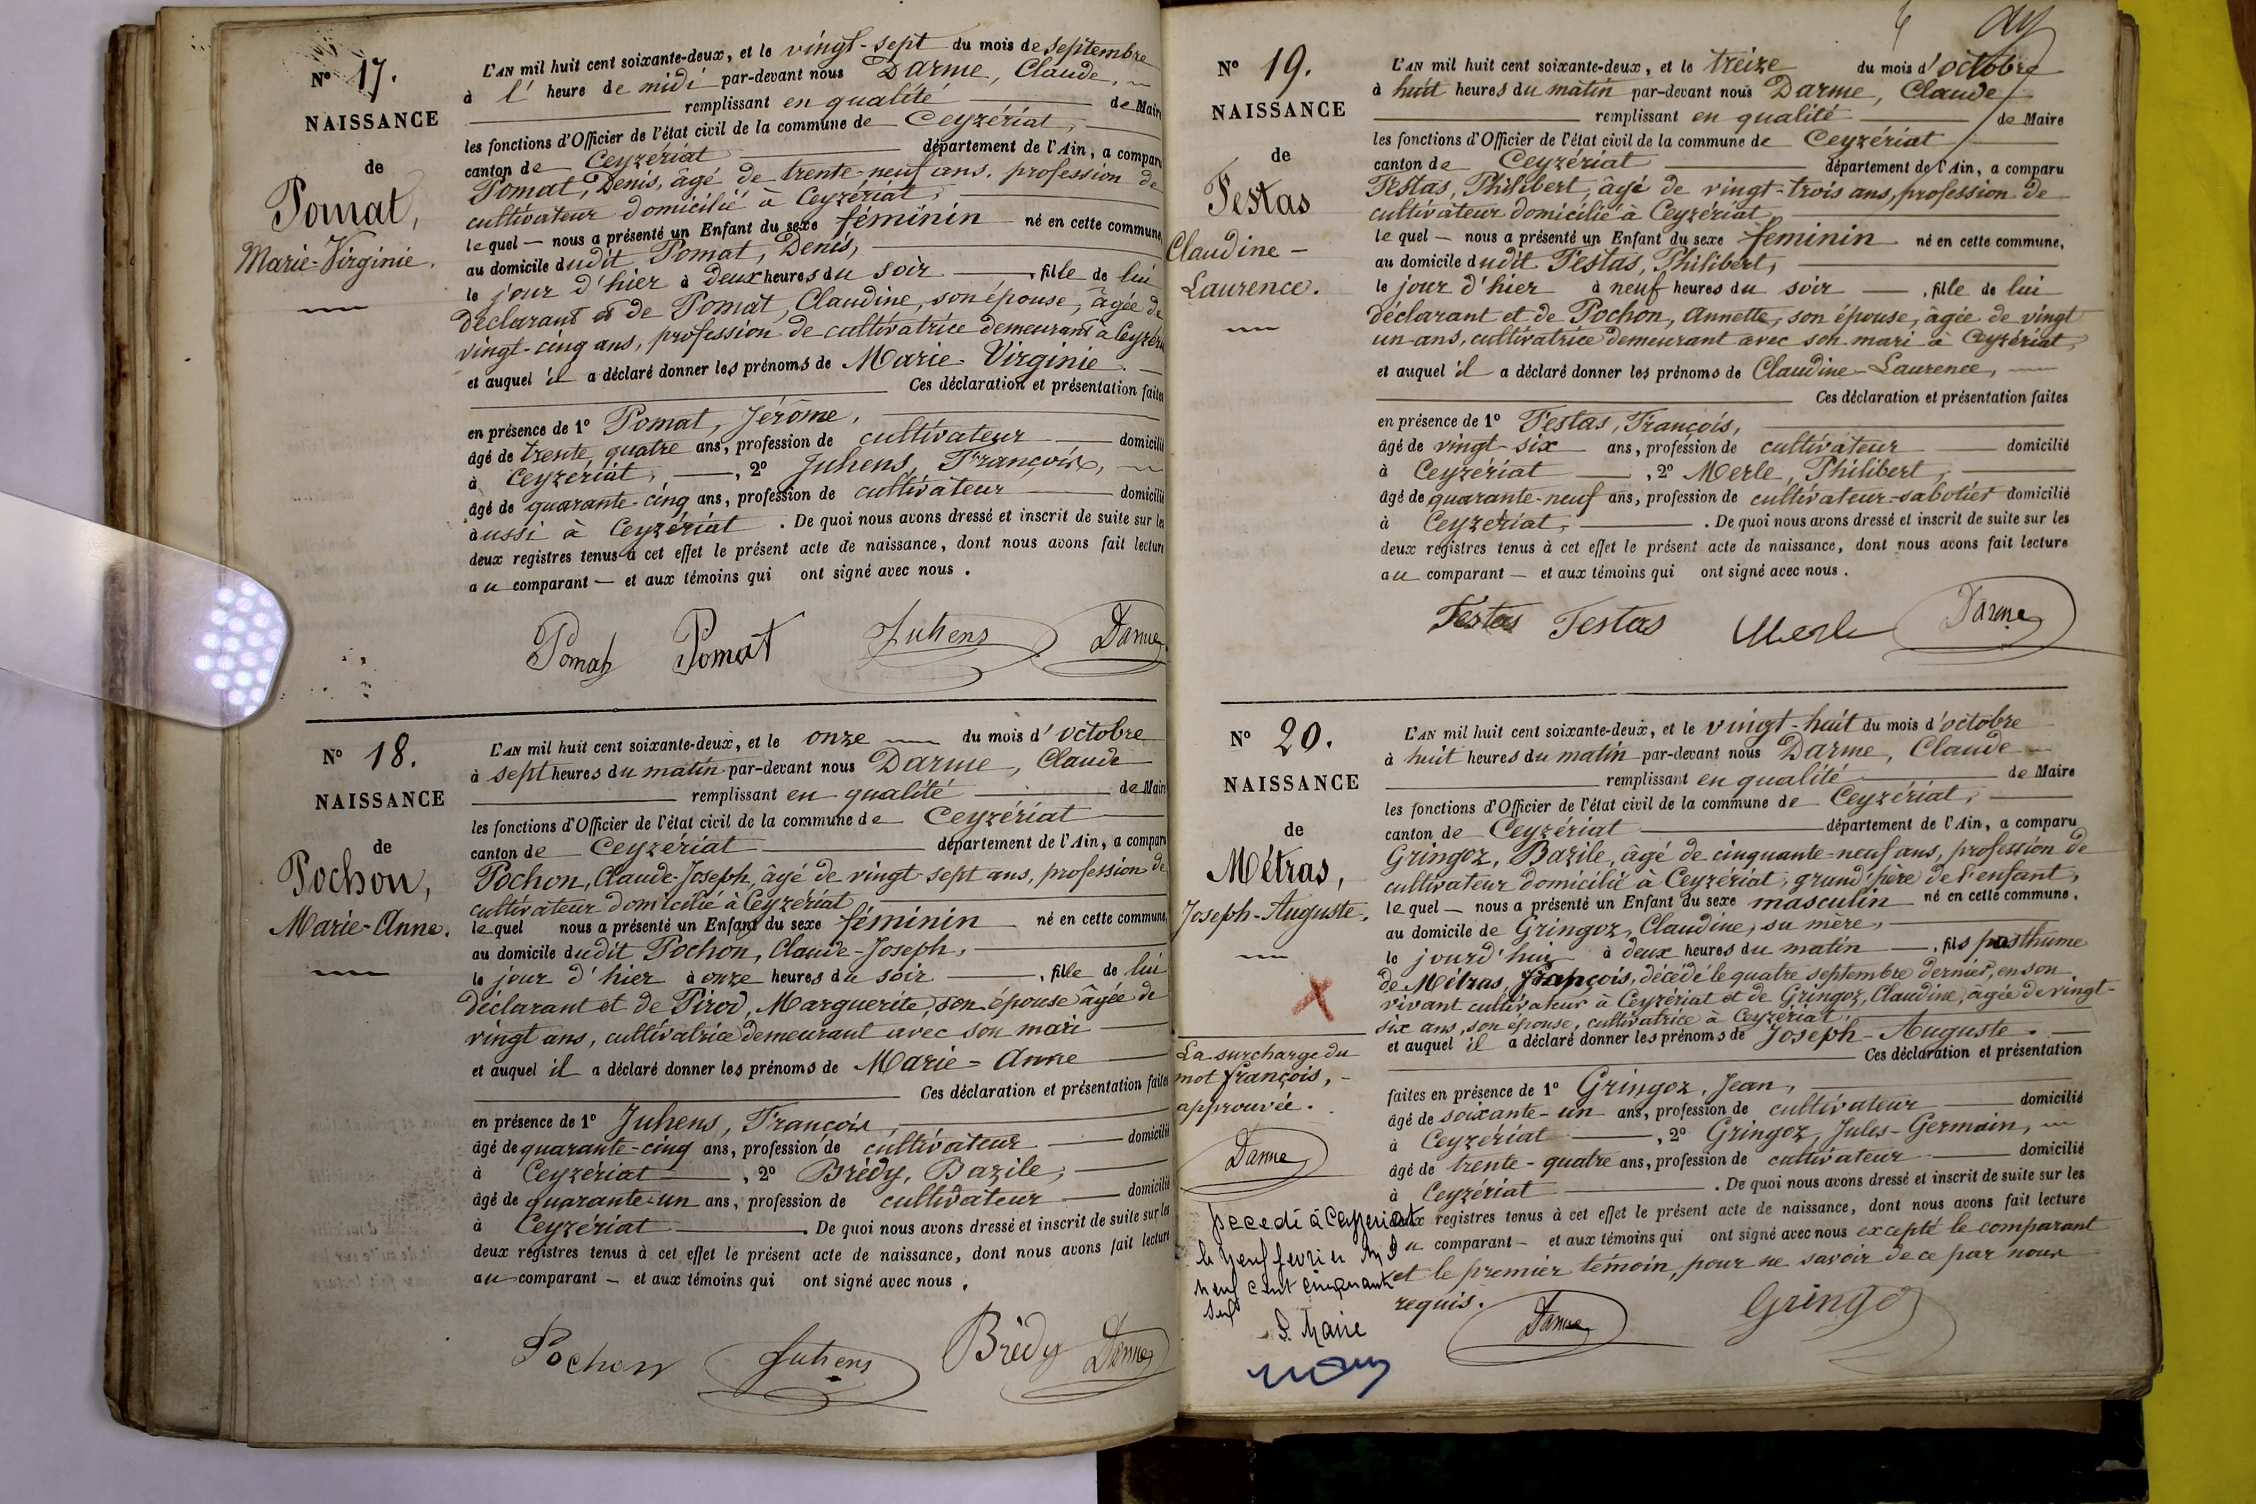 N° 17.
NAISSANCE
de
Pomat,
Marie-Virginie.
L'AN mil huit cent soixante-deux, et le vingt-sept du mois de septembre
à l' heure de midi par-devant nous Darme, Claude,
remplissant en qualité de Maire
les fonctions d'Officier de l'état civil de la commune de Ceyzériat,
canton de Ceyzériat département de l'Ain, a comparu
Pomat, Denis, âgé de trente-neuf ans, profession de
cultivateur domicilié à Ceyzériat,
lequel — nous a présenté un Enfant du sexe féminin né en cette commune,
au domicile dudit Pomat, Denis,
le jour d'hier à deux heures du soir , fille de lui
déclarant et de Pomat, Claudine, son épouse, âgée de
vingt-cinq ans, profession de cultivatrice demeurant à Ceyzéri
et auquel il a déclaré donner les prénoms de Marie-Virginie.
Ces déclaration et présentation faites
en présence de 1° Pomat, Jérôme,
âgé de trente quatre ans, profession de cultivateur domicilié
à Ceyzériat, , 2° Juhens, François,
âgé de quarante-cinq ans, profession de cultivateur domicilié
aussi à Ceyzériat . De quoi nous avons dressé et inscrit de suite sur les
deux registres tenus à cet effet le présent acte de naissance, dont nous avons fait lecture
au comparant — et aux témoins qui ont signé avec nous .
Pomat Pomat Juhens Darme
N° 18.
NAISSANCE
de
Pochon,
Marie-Anne.
L'AN mil huit cent soixante-deux, et le onze du mois d'octobre
à sept heures du matin par-devant nous Darme, Claude
remplissant en qualité de Maire
les fonctions d'Officier de l'état civil de la commune de Ceyzériat
canton de Ceyzériat département de l'Ain, a comparu
Pochon, Claude-Joseph, âgé de vingt-sept ans, profession de
cultivateur domicilié à Ceyzériat
lequel nous a présenté un Enfant du sexe féminin né en cette commune,
au domicile dudit Pochon, Claude-Joseph,
le jour d'hier à onze heures du soir , fille de lui
déclarant et de Pirod, Marguerite, son épouse âgée de
vingt ans, cultivatrice demeurant avec son mari
et auquel il a déclaré donner les prénoms de Marie-Anne
Ces déclaration et présentation faites
en présence de 1° Juhens, François,
âgé de quarante-cinq ans, profession de cultivateur domicilié
à Ceyzériat , 2° Brédy, Bazile,
âgé de quarante-un ans, profession de cultivateur domicilié
à Ceyzériat . De quoi nous avons dressé et inscrit de suite sur les
deux registres tenus à cet effet le présent acte de naissance, dont nous avons fait lecture
au comparant — et aux témoins qui ont signé avec nous .
Pochon Juhens Brédy Darme
N° 19.
NAISSANCE
de
Festas
Claudine-
Laurence.
L'AN mil huit cent soixante-deux, et le treize du mois d'octobre
à huit heures du matin par-devant nous Darme, Claude
remplissant en qualité de Maire
les fonctions d'Officier de l'état civil de la commune de Ceyzériat
canton de Ceyzériat département de l'Ain, a comparu
Festas, Philibert, âgé de vingt-trois ans, profession de
cultivateur domicilié à Ceyzériat,
lequel — nous a présenté un Enfant du sexe féminin né en cette commune,
au domicile dudit Festas, Philibert,
le jour d'hier à neuf heures du soir , fille de lui
déclarant et de Pochon, Annette, son épouse, âgée de vingt
un ans, cultivatrice demeurant avec son mari à Ceyzériat,
et auquel il a déclaré donner les prénoms de Claudine-Laurence,
Ces déclaration et présentation faites
en présence de 1° Festas, François,
âgé de vingt-six ans, profession de cultivateur domicilié
à Ceyzériat , 2° Merle, Philibert,
âgé de quarante-neuf ans, profession de cultivateur-sabotier domicilié
à Ceyzériat, . De quoi nous avons dressé et inscrit de suite sur les
deux registres tenus à cet effet le présent acte de naissance, dont nous avons fait lecture
au comparant — et aux témoins qui ont signé avec nous .
Festas Festas Merle Darme
N° 20.
NAISSANCE
de
Métras,
Joseph-Auguste.
La surcharge du
mot françois,
approuvée.
Darme
Décédé à Ceyzeriat
le neuf fevrier M
neuf cent cinquante
sept
L. Maire
L'AN mil huit cent soixante-deux, et le vingt-huit du mois d'octobre
à huit heures du matin par-devant nous Darme, Claude
remplissant en qualité de Maire
les fonctions d'Officier de l'état civil de la commune de Ceyzériat,
canton de Ceyzériat département de l'Ain, a comparu
Gringoz, Bazile, âgé de cinquante-neuf ans, profession de
cultivateur domicilié à Ceyzériat, grand'père de l'enfant,
lequel — nous a présenté un Enfant du sexe masculin né en cette commune.
au domicile de Gringoz, Claudine, sa mère,
le jourd'hui à deux heures du matin , fils posthume
de Métras, françois, décédé le quatre septembre dernier, en son
vivant cultivateur à Ceyzériat et de Gringoz, Claudine, âgée de vingt-
six ans, son épouse, cultivatrice à Ceyzériat,
et auquel il a déclaré donner les prénoms de Joseph-Auguste.
Ces déclaration et présentation
faites en présence de 1° Gringoz, Jean,
âgé de soixante-un ans, profession de cultivateur domicilié
à Ceyzériat , 2° Gringoz, Jules-Germain,
âgé de trente-quatre ans, profession de cultivateur domicilié
à Ceyzériat . De quoi nous avons dressé et inscrit de suite sur les
deux registres tenus à cet effet le présent acte de naissance, dont nous avons fait lecture
au comparant — et aux témoins qui ont signé avec nous excepté le comparant
et le premier témoin, pour ne savoir de ce par nous
requis.
Darme Gringoz